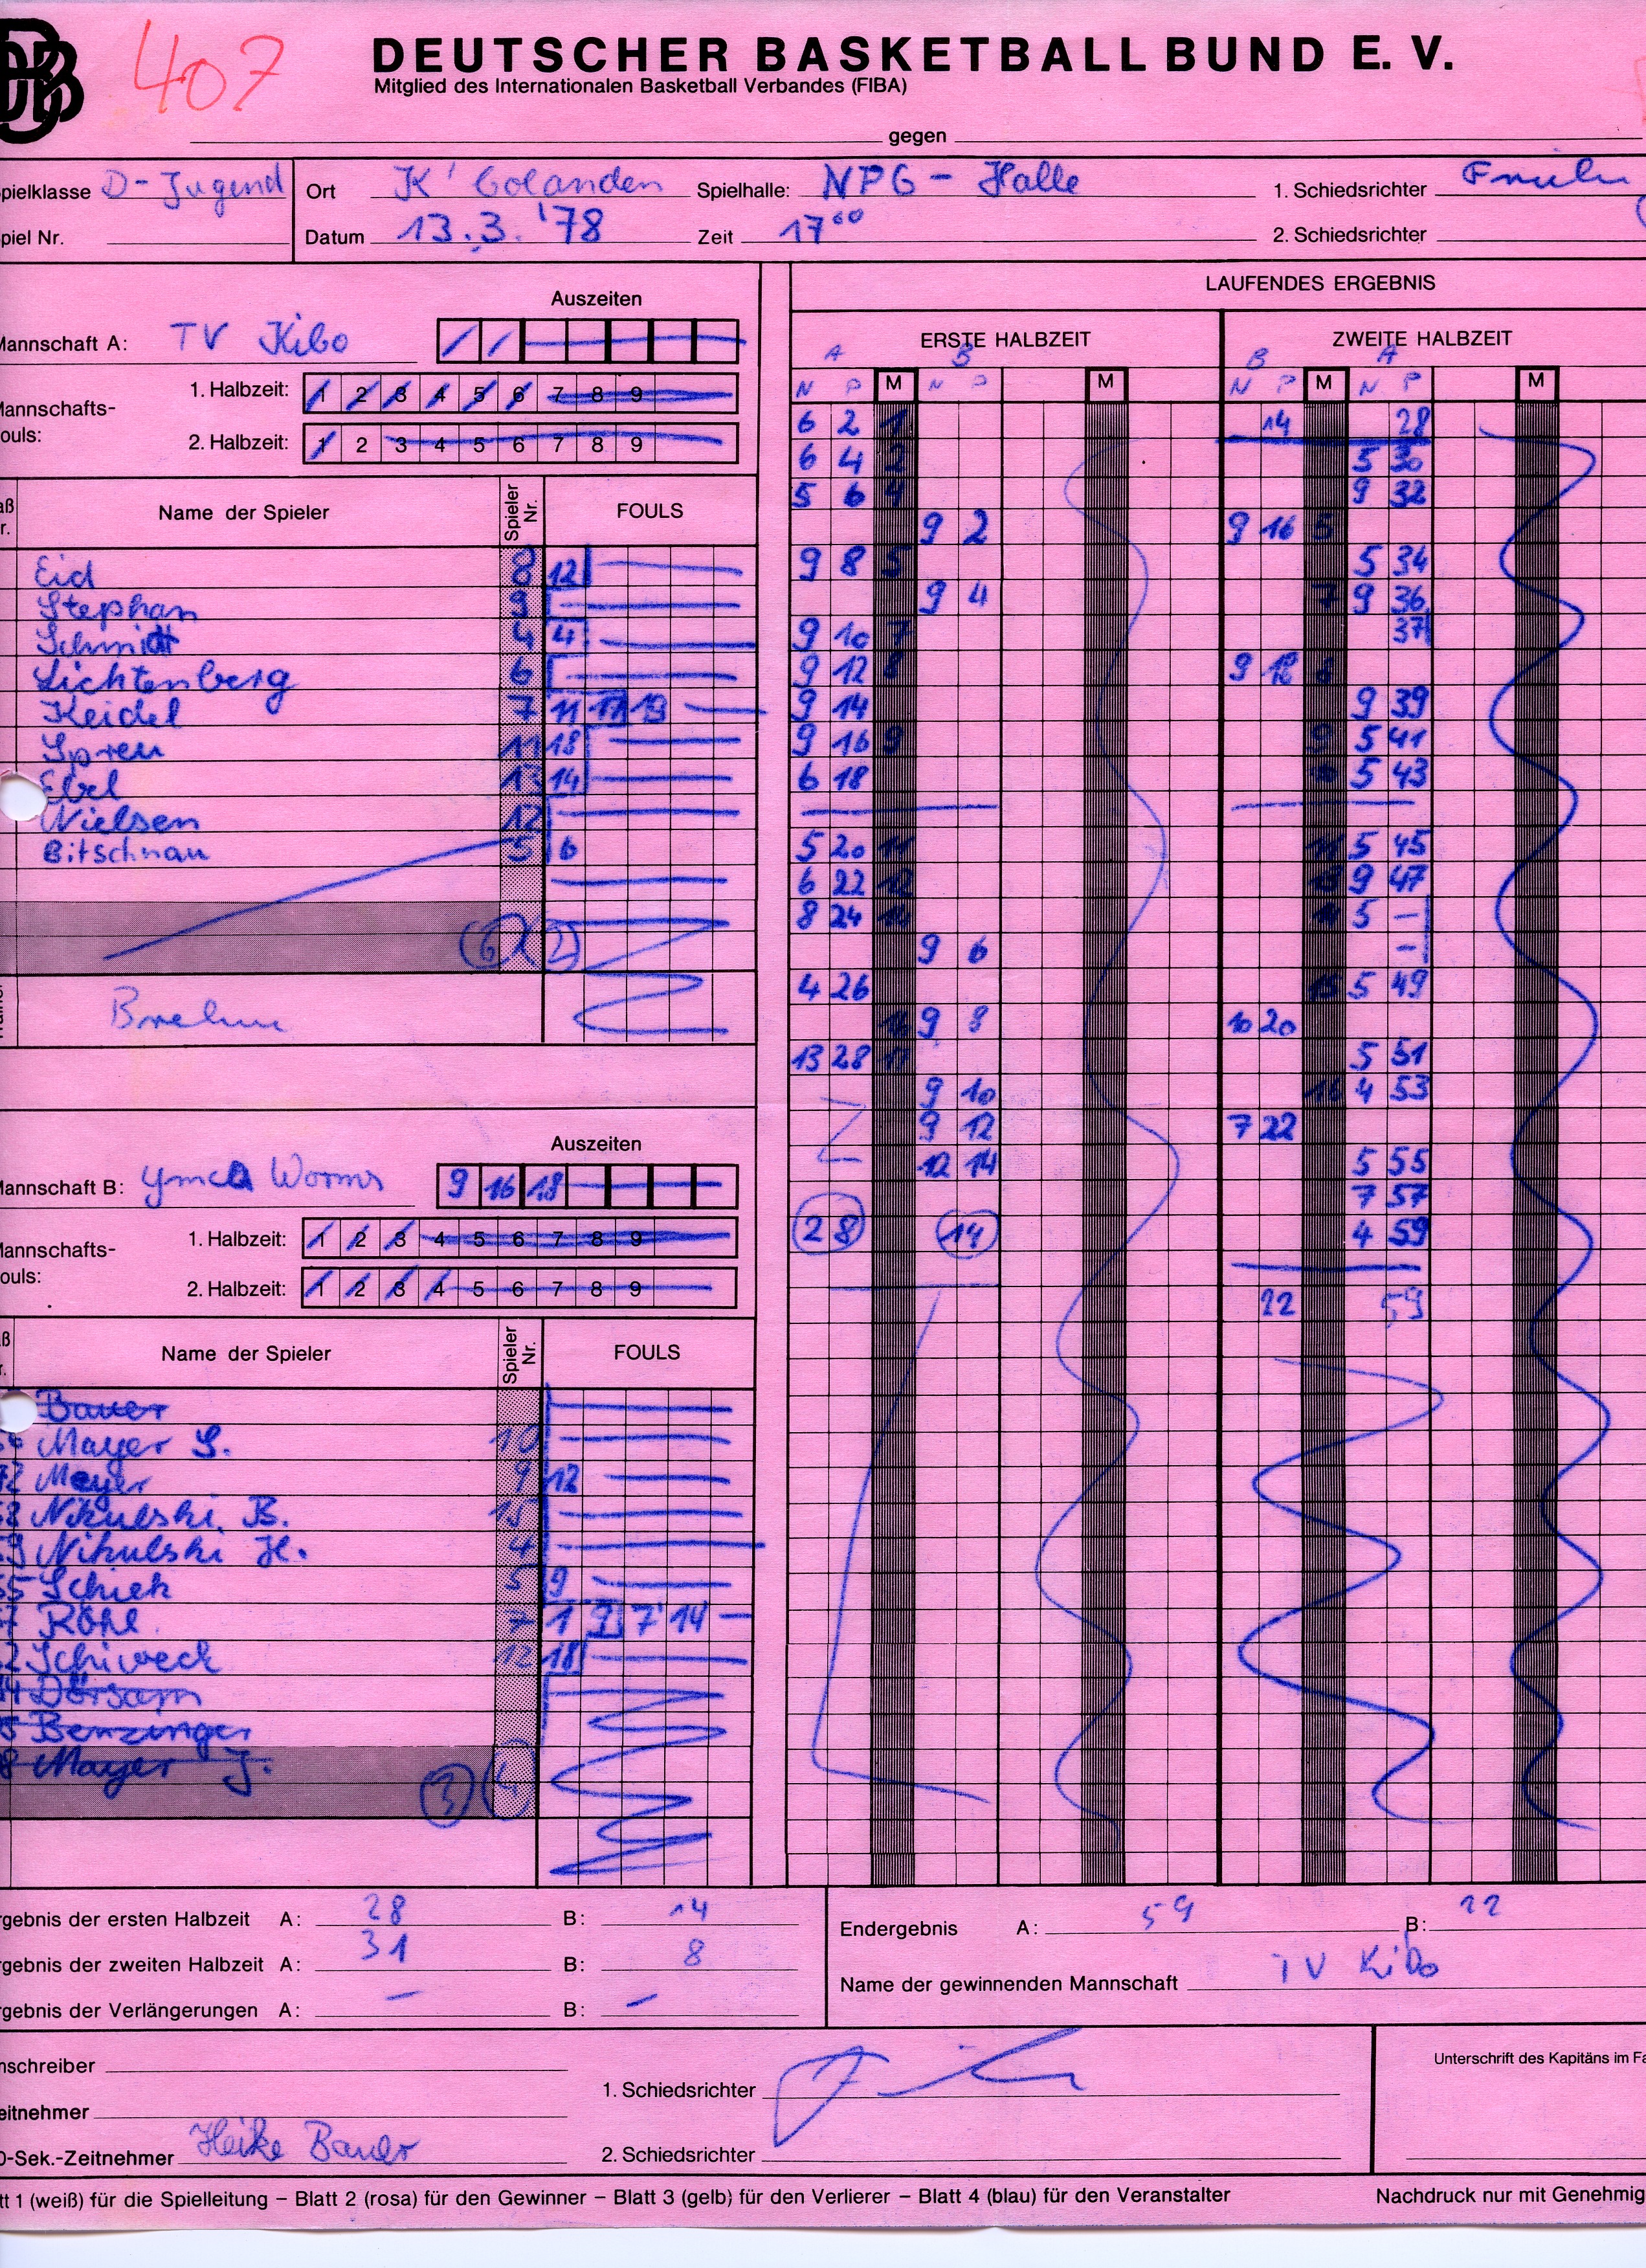 DBB 407 DEUTSCHER BASKETBALL BUND E. V.
Mitglied des Internationalen Basketball Verbandes (FIBA)
gegen
pielklasse D-Jugend Ort K'bolanden Spielhalle: NPG - Halle 1. Schiedsrichter
piel Nr. Datum 13.3.'78 Zeit 17⁰⁰ 2. Schiedsrichter
LAUFENDES ERGEBNIS
Auszeiten
annschaft A: TV Kibo
ERSTE HALBZEIT ZWEITE HALBZEIT
A B B A
N P M N P M N P M N P M
annschafts-
ouls:
1. Halbzeit: 1 2 3 4 5 6 7 8 9
2. Halbzeit: 1 2 3 4 5 6 7 8 9
Name der Spieler Spieler Nr. FOULS
Eid 8 12
Stephan 9
Schmitt 4 4
Lichtenberg 6
Keidel 7 11 17 19
Spreu 11 18
Ebel 13 14
Nielsen 12
Bitschnau 5 6
6 2
Brehm
Auszeiten
annschaft B: YMCA Worms 9 16 18
annschafts-
ouls:
1. Halbzeit: 1 2 3 4 5 6 7 8 9
2. Halbzeit: 1 2 3 4 5 6 7 8 9
Name der Spieler Spieler Nr. FOULS
Bauer
Mayer S. 10
Meyer 9 12
Nikulski B. 15
Nikulski H. 4
Schiek 5 9
Röhl 7 1 9 7 14
Schweck 12 18
Dörsam
Benzinger
Mayer J.
3
6 2 1
6 4 2
5 6 4
9 2
9 8 5
9 4
9 10 7
9 12 8
9 14
9 16 9
6 18
5 20 11
6 22 12
8 24
9 6
4 26
9 8
13 28 17
9 10
9 12
12 14
28 14
14 28
5 30
9 32
9 16 5
5 34
7 9 36
37
9 18
9 39
9 5 41
5 43
5 45
9 47
5 –
–
15 5 49
10 20
5 51
16 4 53
7 22
5 55
7 57
4 59
22 59
rgebnis der ersten Halbzeit A: 28 B: 14
rgebnis der zweiten Halbzeit A: 31 B: 8
rgebnis der Verlängerungen A: – B: –
Endergebnis A: 59 B: 22
Name der gewinnenden Mannschaft TV Kibo
nschreiber
eitnehmer
0-Sek.-Zeitnehmer Heike Bauer
1. Schiedsrichter
2. Schiedsrichter
Unterschrift des Kapitäns im Fa
tt 1 (weiß) für die Spielleitung – Blatt 2 (rosa) für den Gewinner – Blatt 3 (gelb) für den Verlierer – Blatt 4 (blau) für den Veranstalter Nachdruck nur mit Genehmig